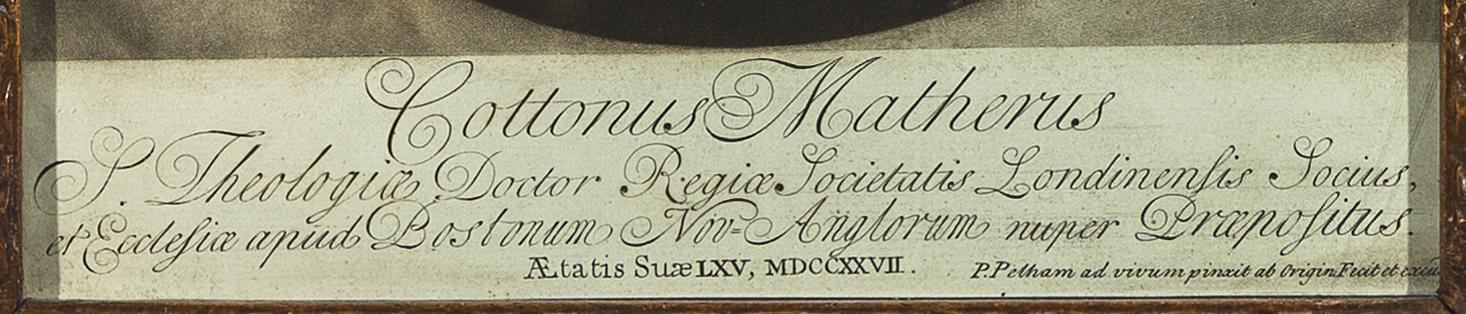 Cottonus Matherus
S. Theologiæ Doctor Regiæ Societatis Londinenſis Socius,
et Eccleſiæ apud Bostonum Nov=Anglorum nuper Præpoſitus.
Ætatis Suæ LXV, MDCCXXVII. P. Pelham ad vivum pinxit ab Origin Fecit et excud